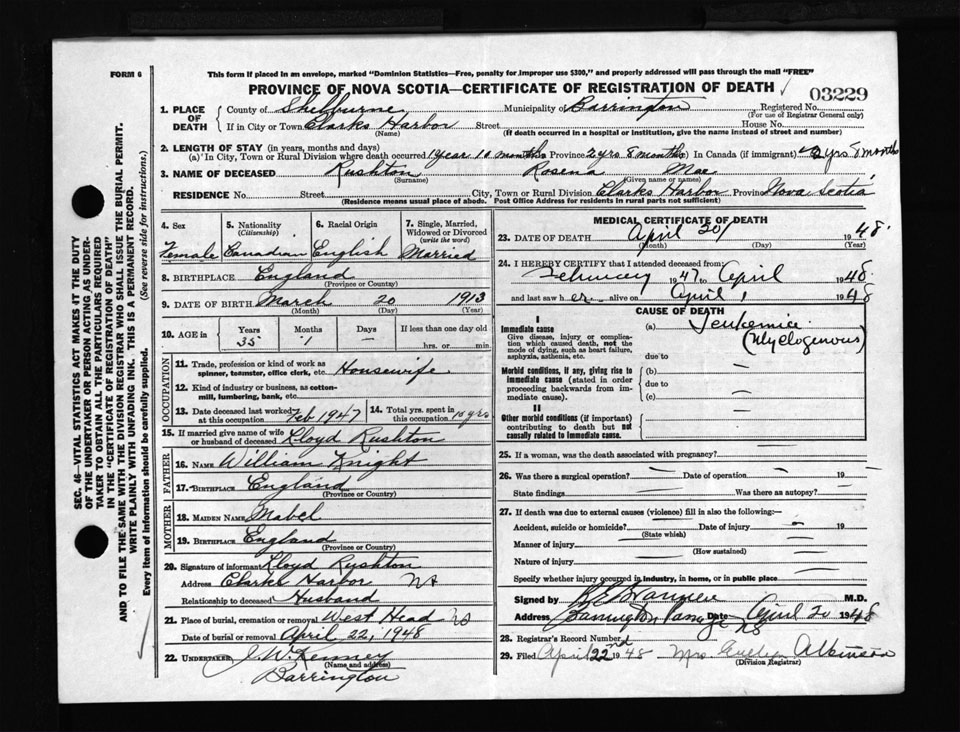 FORM 6
This form if placed in an envelope, marked "Dominion Statistics—Free, penalty for improper use $300," and properly addressed will pass through the mail "FREE"
PROVINCE OF NOVA SCOTIA—CERTIFICATE OF REGISTRATION OF DEATH
03229
1. PLACE OF DEATH
County of Shelburne Municipality of Barrington Registered No.
(For use of Registrar General only)
If in City or Town Clarks Harbor Street House No.
(Name) (If death occurred in a hospital or institution, give the name instead of street and number)
2. LENGTH OF STAY (in years, months and days)
(a) In City, Town or Rural Division where death occurred 1 year 10 months Province 2 yrs 8 months In Canada (if immigrant) 2 yrs 8 months
3. NAME OF DECEASED Rushton Rosena Mae
(Surname) (Given name or names)
RESIDENCE No. Street City, Town or Rural Division Clarks Harbor Province Nova Scotia
(Residence means usual place of abode. Post Office Address for residents in rural parts not sufficient)
4. Sex
Female
5. Nationality
(Citizenship)
Canadian
6. Racial Origin
English
7. Single, Married, Widowed or Divorced
(write the word)
Married
8. BIRTHPLACE England
(Province or Country)
9. DATE OF BIRTH March 20 1913
(Month) (Day) (Year)
10. AGE in Years Months Days If less than one day old
35 1 — hrs. or min.
OCCUPATION
11. Trade, profession or kind of work as spinner, teamster, office clerk, etc. Housewife
12. Kind of industry or business, as cotton-mill, lumbering, bank, etc.
13. Date deceased last worked at this occupation Feb 1947
14. Total yrs. spent in this occupation 10 yrs
15. If married give name of wife or husband of deceased Lloyd Rushton
FATHER
16. NAME William Knight
17. BIRTHPLACE England
(Province or Country)
MOTHER
18. MAIDEN NAME Mabel
19. BIRTHPLACE England
(Province or Country)
20. Signature of informant Lloyd Rushton
Address Clarks Harbor NS
Relationship to deceased Husband
21. Place of burial, cremation or removal West Head NS
Date of burial or removal April 22, 1948
22. UNDERTAKER J. W. Kenney
(Name and address)
Barrington
MEDICAL CERTIFICATE OF DEATH
23. DATE OF DEATH April 20 1948
(Month) (Day) (Year)
24. I HEREBY CERTIFY that I attended deceased from:
February 1947 to April 1948
and last saw her alive on April 1, 1948
CAUSE OF DEATH
I
Immediate cause (a) Leukemia
Give disease, injury or complication which caused death, not the mode of dying, such as heart failure, asphyxia, asthenia, etc.
(Myelogenous)
due to
Morbid conditions, if any, giving rise to immediate cause (stated in order proceeding backwards from immediate cause).
(b)
due to
(c)
II
Other morbid conditions (if important) contributing to death but not causally related to immediate cause.
25. If a woman, was the death associated with pregnancy?
26. Was there a surgical operation? — Date of operation — 19
State findings Was there an autopsy?
27. If death was due to external causes (violence) fill in also the following:—
Accident, suicide or homicide? Date of injury 19
(State which)
Manner of injury
(How sustained)
Nature of injury
Specify whether injury occurred in industry, in home, or in public place
Signed by M.D.
Address Barrington Passage NS Date April 20 1948
28. Registrar's Record Number
29. Filed April 22nd 1948 Mrs. Evelyn Atkinson
(Division Registrar)
SEC. 46—VITAL STATISTICS ACT MAKES IT THE DUTY
OF THE UNDERTAKER OR PERSON ACTING AS UNDER-
TAKER TO OBTAIN ALL THE PARTICULARS REQUIRED
IN THE "CERTIFICATE OF REGISTRATION OF DEATH"
AND TO FILE THE SAME WITH THE DIVISION REGISTRAR WHO SHALL ISSUE THE BURIAL PERMIT.
WRITE PLAINLY WITH UNFADING INK. THIS IS A PERMANENT RECORD.
Every item of information should be carefully supplied. (See reverse side for instructions.)